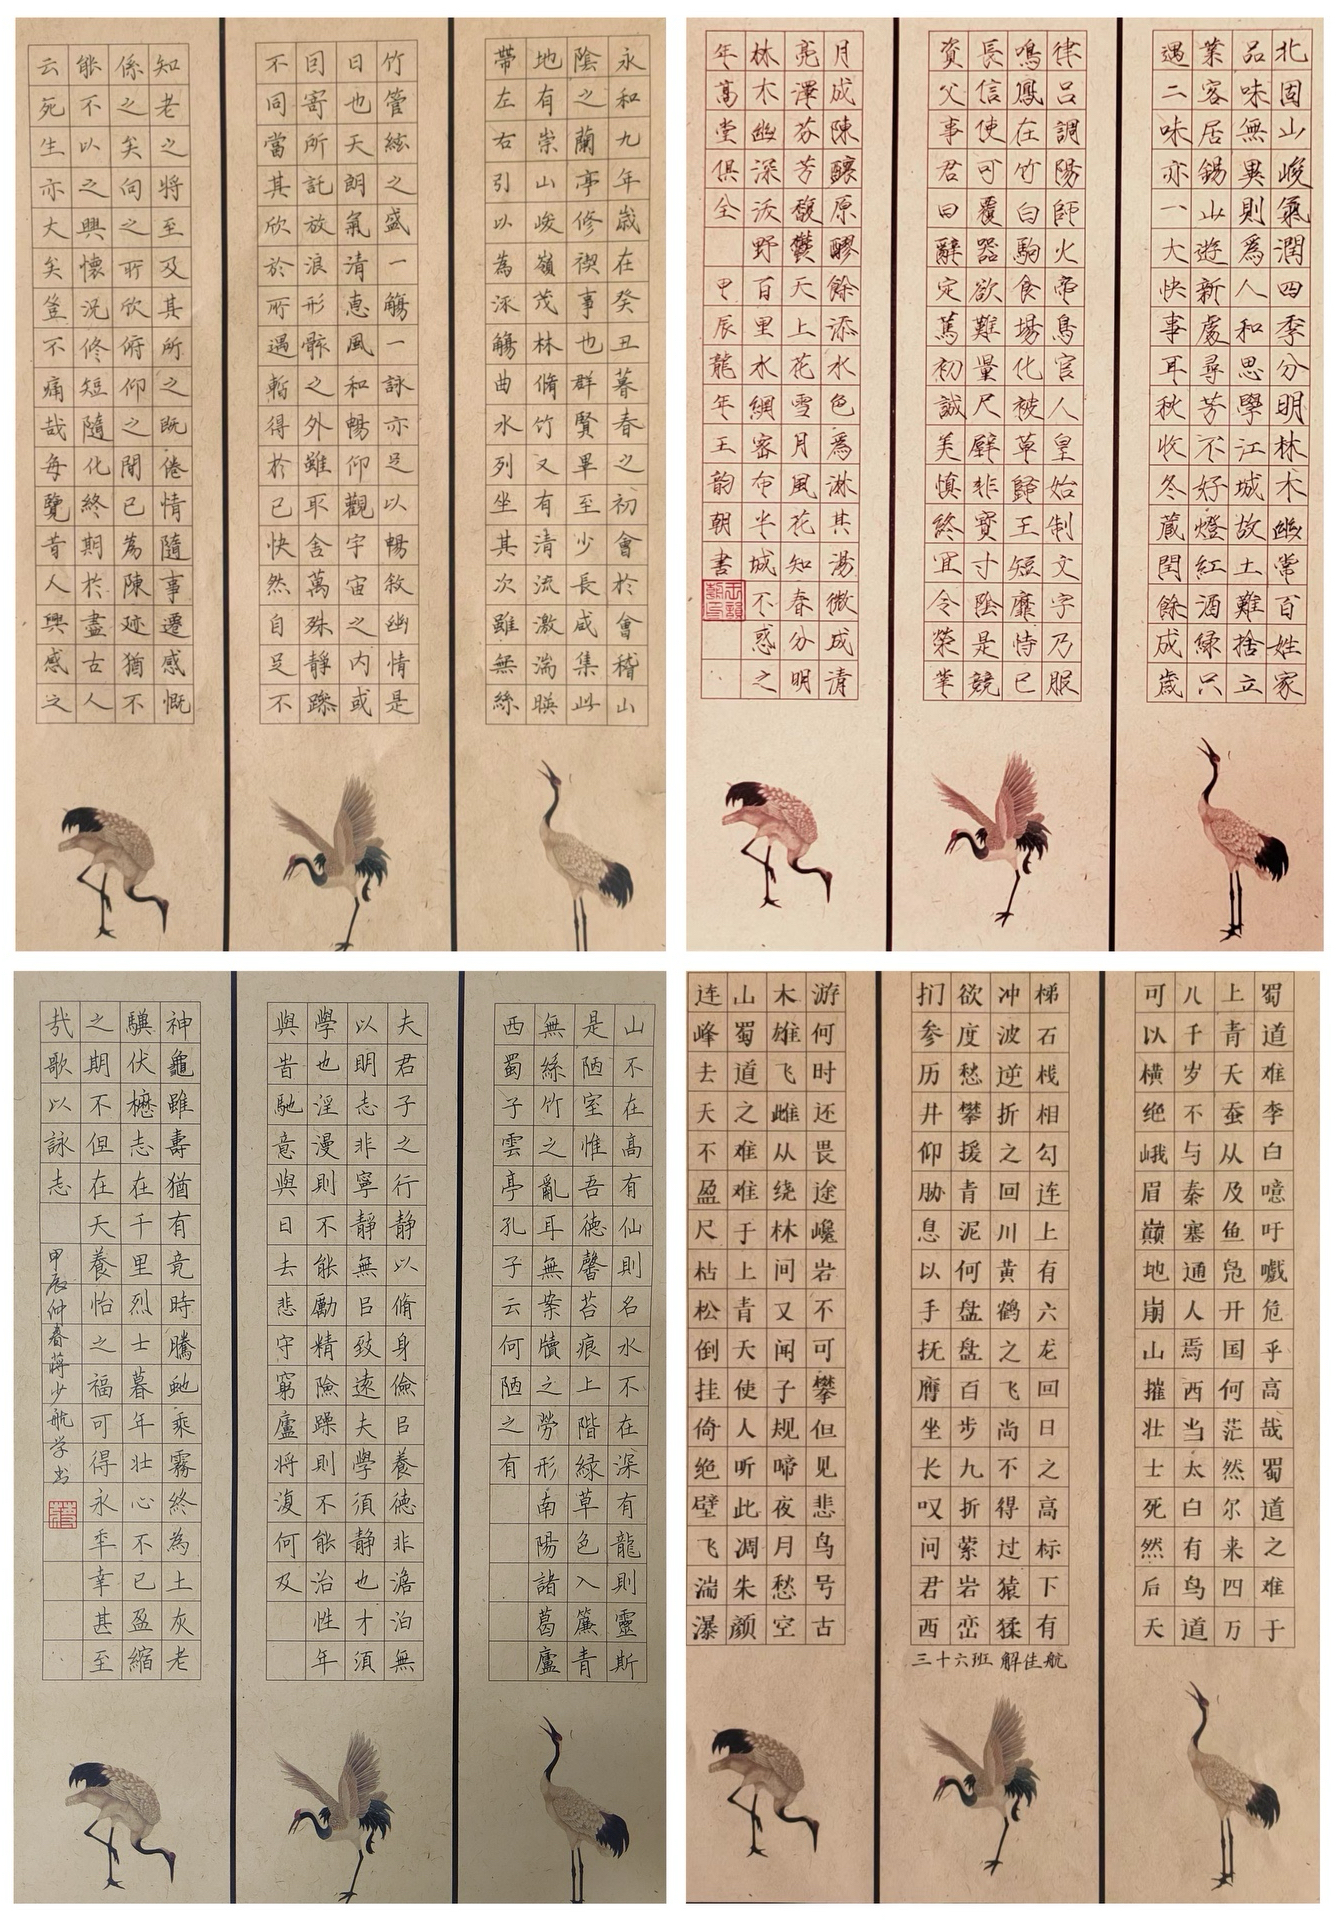 永和九年歲在癸丑暮春之初會於會稽山
陰之蘭亭修禊事也群賢畢至少長咸集此
地有崇山峻嶺茂林脩竹又有清流激湍暎
帶左右引以為流觴曲水列坐其次雖無絲
竹管絃之盛一觴一詠亦足以暢敘幽情是
日也天朗氣清惠風和暢仰觀宇宙之內或
回寄所託放浪形骸之外雖取舍萬殊靜躁
不同當其欣於所遇暫得於己快然自足不
知老之將至及其所之既倦情隨事遷感慨
係之矣向之所欣俯仰之間已為陳迹猶不
能不以之興懷況修短隨化終期於盡古人
云死生亦大矣豈不痛哉每覽昔人興感之
北固山峻氣潤四季分明林木幽常百姓家
品味無異則為人和思學江城故土難捨立
業客居錫山遊新處尋芳不好燈紅酒綠只
遇二味亦一大快事耳秋收冬藏閏餘成歲
律呂調陽師火帝鳥官人皇始制文字乃服
鳴鳳在竹白駒食場化被草歸王短靡恃己
長信使可覆器欲難量尺壁非寶寸陰是競
資父事君曰辭定篤初誠美慎終宜令榮華
月成陳釀原醪餘添水色為淋其湯微成清
亮澤芬芳馥鬱天上花雪月風花知春分明
林木幽深沃野百里水網密布半城不惑之
年高堂俱全 甲辰龍年王韵朝書
山不在高有仙則名水不在深有龍則靈斯
是陋室惟吾德馨苔痕上階緑草色入簾青
無絲竹之亂耳無案牘之勞形南陽諸葛廬
西蜀子雲亭孔子云何陋之有
夫君子之行静以脩身儉㠯養德非澹泊無
以明志非寧靜無㠯致遠夫學須靜也才須
學也淫漫則不能勵精險躁則不能治性年
與旹馳意與日去悲守窮廬將復何及
神龜雖壽猶有竟時騰虵乘霧終為土灰老
驥伏櫪志在千里烈士暮年壯心不已盈縮
之期不但在天養怡之福可得永年幸甚至
哉歌以詠志 甲辰仲春蔣少航学书
蜀道难李白噫吁嚱危乎高哉蜀道之难于
上青天蚕丛及鱼凫开国何茫然尔来四万
八千岁不与秦塞通人焉西当太白有鸟道
可以横绝峨眉巅地崩山摧壮士死然后天
梯石栈相勾连上有六龙回日之高标下有
冲波逆折之回川黄鹤之飞尚不得过猿猱
欲度愁攀援青泥何盘盘百步九折萦岩峦
扪参历井仰胁息以手抚膺坐长叹问君西
游何时还畏途巉岩不可攀但见悲鸟号古
木雄飞雌从绕林间又闻子规啼夜月愁空
山蜀道之难难于上青天使人听此凋朱颜
连峰去天不盈尺枯松倒挂倚绝壁飞湍瀑
三十六班 解佳航